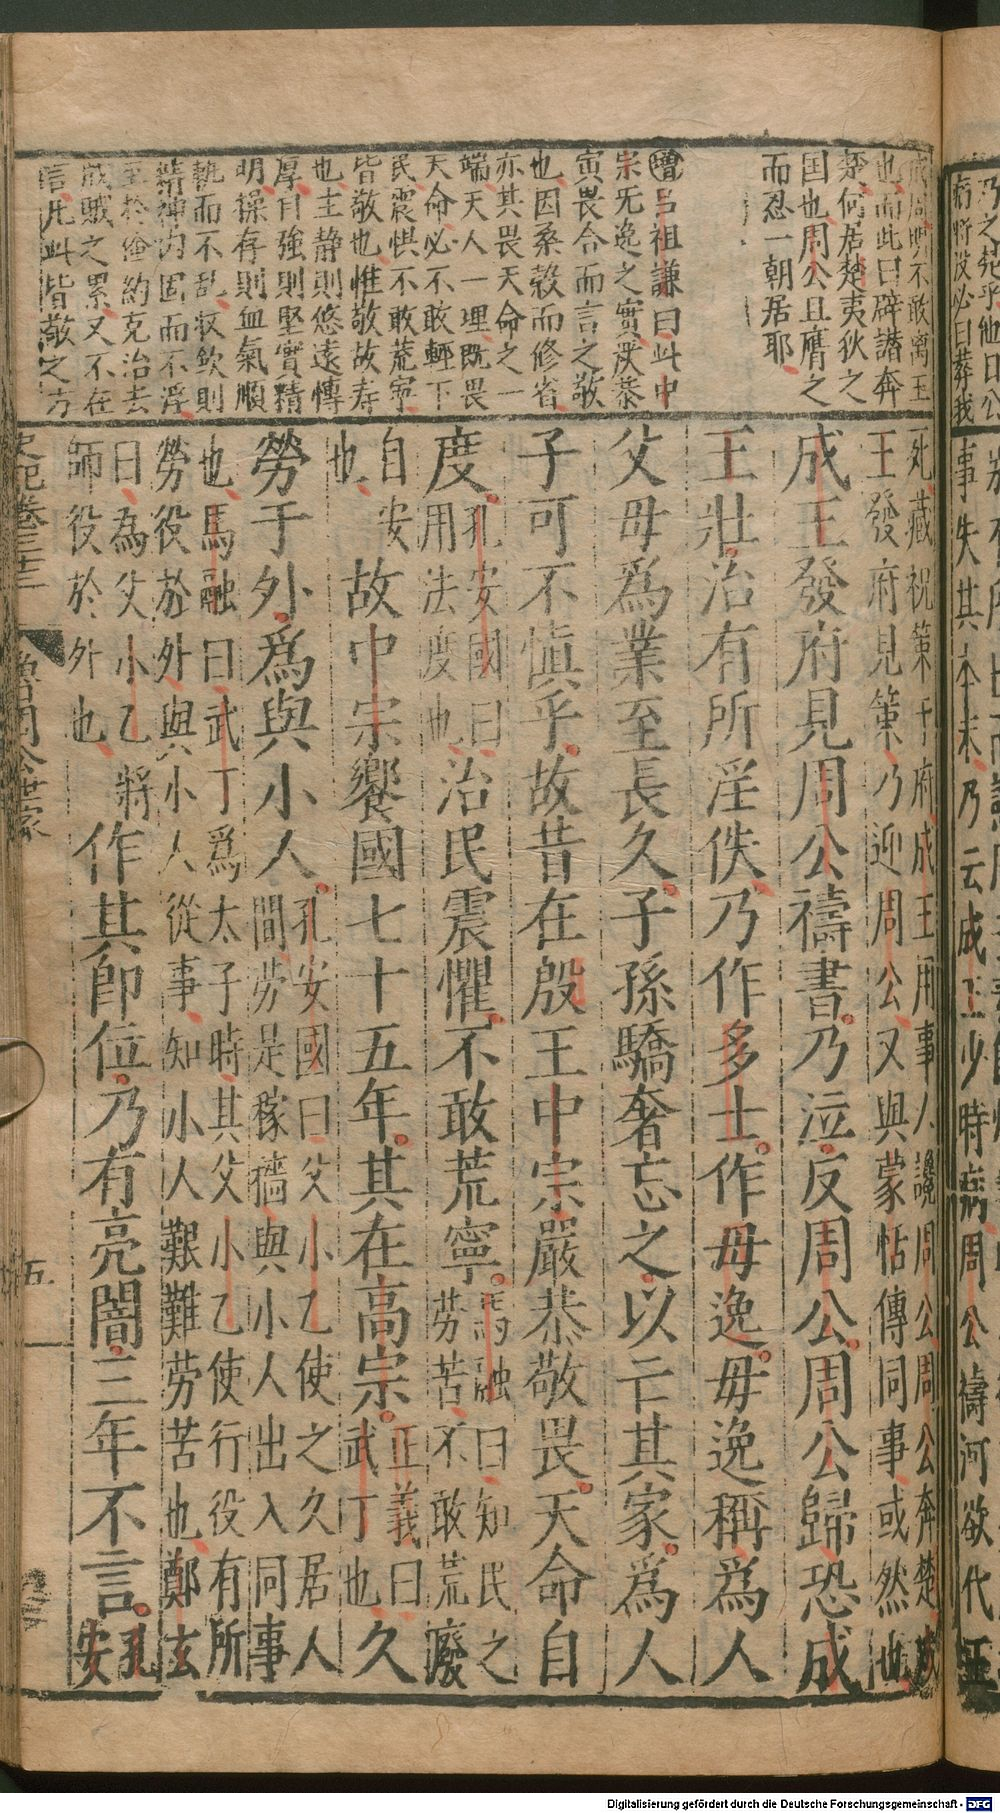 成周明不敢离王
也而此曰辟譖奔
楚何居楚夷狄之
国也周公且膺之
而忍一朝居耶
增吕祖謙曰此中
宗无逸之實严恭
寅畏合而言之敬
也因桑穀而修省
亦其畏天命之一
端天人一理既畏
天命必不敢輕下
民震惧不敢荒寧
皆敬也惟敬故寿
也主静則悠遠慱
厚自強則堅實精
明操存則血氣順
軌而不乱收歛則
精神内固而不浮
至於儉約克治去
戕賊之累又不在
言凡此皆敬之方
死藏祝策于府成王用事人讒周公周公奔楚成
王發府見策乃迎周公又與蒙恬傳同事或然也
成王發府見周公禱書乃泣反周公周公歸恐成
王壯治有所淫佚乃作多士作毋逸毋逸稱爲人
父母爲業至長久子孫驕奢忘之以亡其家爲人
子可不愼乎故昔在殷王中宗嚴恭敬畏天命自
度孔安國曰用法度也治民震懼不敢荒寧馬融曰知民之勞苦不敢荒廢
自安也故中宗饗國七十五年其在高宗正義曰武丁也久
勞于外爲與小人孔安國曰父小乙使之久居人間勞是稼穡與小人出入同事
也馬融曰武丁爲太子時其父小乙使行役有所
勞役於外與小人從事知小人艱難劳苦也鄭玄
曰為父小乙將師役於外也作其即位乃有亮闇三年不言孔安
史記卷三十三
魯周公世家
五
乃之楚乎他日公
病將没必曰葬我
事失其本末乃云成王少時病周公禱河欲代王
Digitalisierung gefördert durch die Deutsche Forschungsgemeinschaft - DFG